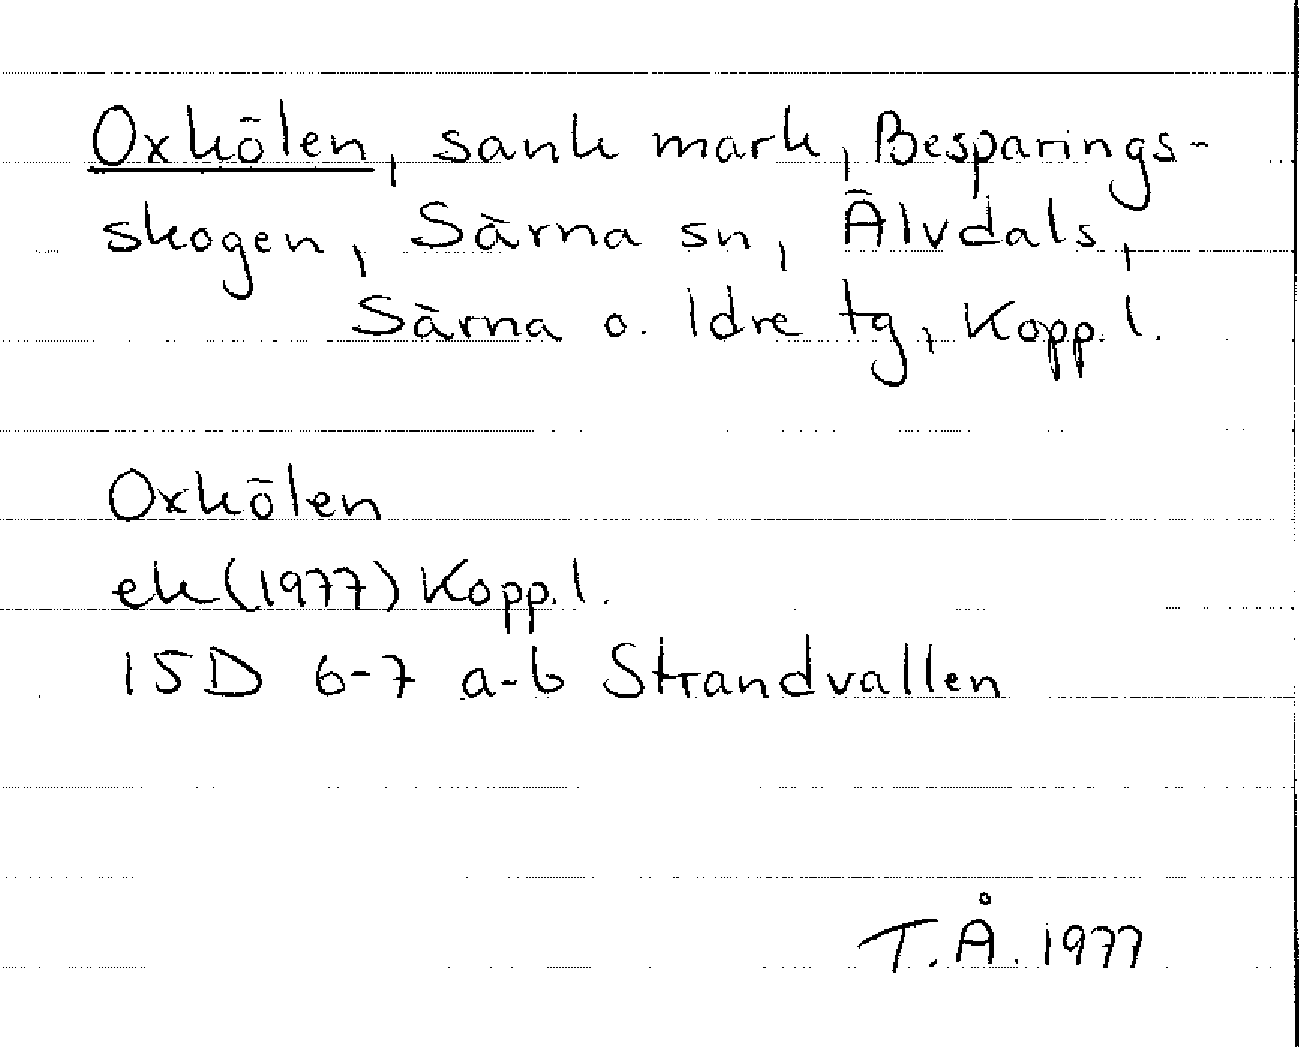 Oxkölen, sank mark, Besparings-
skogen, Särna sn, Älvdals,
Särna o. Idre tg, Kopp. l.
Oxkölen
ek (1977) Kopp. l.
15D 6-7 a-b Strandvallen
T.Å. 1977